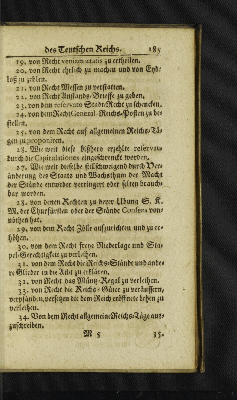 des Teutschen Reichs. 185
19. von Recht veniam ætatis zu ertheilen.
20. von Recht ehrlich zu machen und von Eyd
loß zu zehlen.
21. von Recht Messen zu verstatten.
22. von Recht Anstands-Brieffe zu geben.
23. von dem reservato Stadt-Recht zu schencken.
24. von dem Recht General-Reichs-Posten zu be-
stellen.
25. von dem Recht auf allgemeinen Reichs-Tä-
gen zu proponiren.
28. Wie weit diese bißhero erzehlte reservata
durch die Capitulationes eingeschrenckt werden.
27. Wie weit dieselbe stillschweigend durch Ver-
änderung des Staats und Wachsthum der Macht
der Stände entweder verringert oder selten brauch-
bar worden.
28. von denen Rechten zu derer Ubung S. K.
M. der Churfürsten oder der Stände Consens von-
nöthen hat.
29. von dem Recht Zölle aufzurichten und zu er-
höhen.
30. von dem Recht freye Niederlage und Sta-
pel-Gerechtigkeit zu verleihen.
31. von dem Recht die Reichs-Stände und ande-
re Glieder in die Acht zu erklären.
32. von Recht das Müntz-Regal zu verleihen.
33. von Recht die Reichs-Güter zu veräussern,
verpfänden, versetzen die dem Reich eröffnete Lehen zu
verleihen.
34. Von dem Recht allgemeine Reichs-Täge aus-
zuschreiben.
M 5 35.